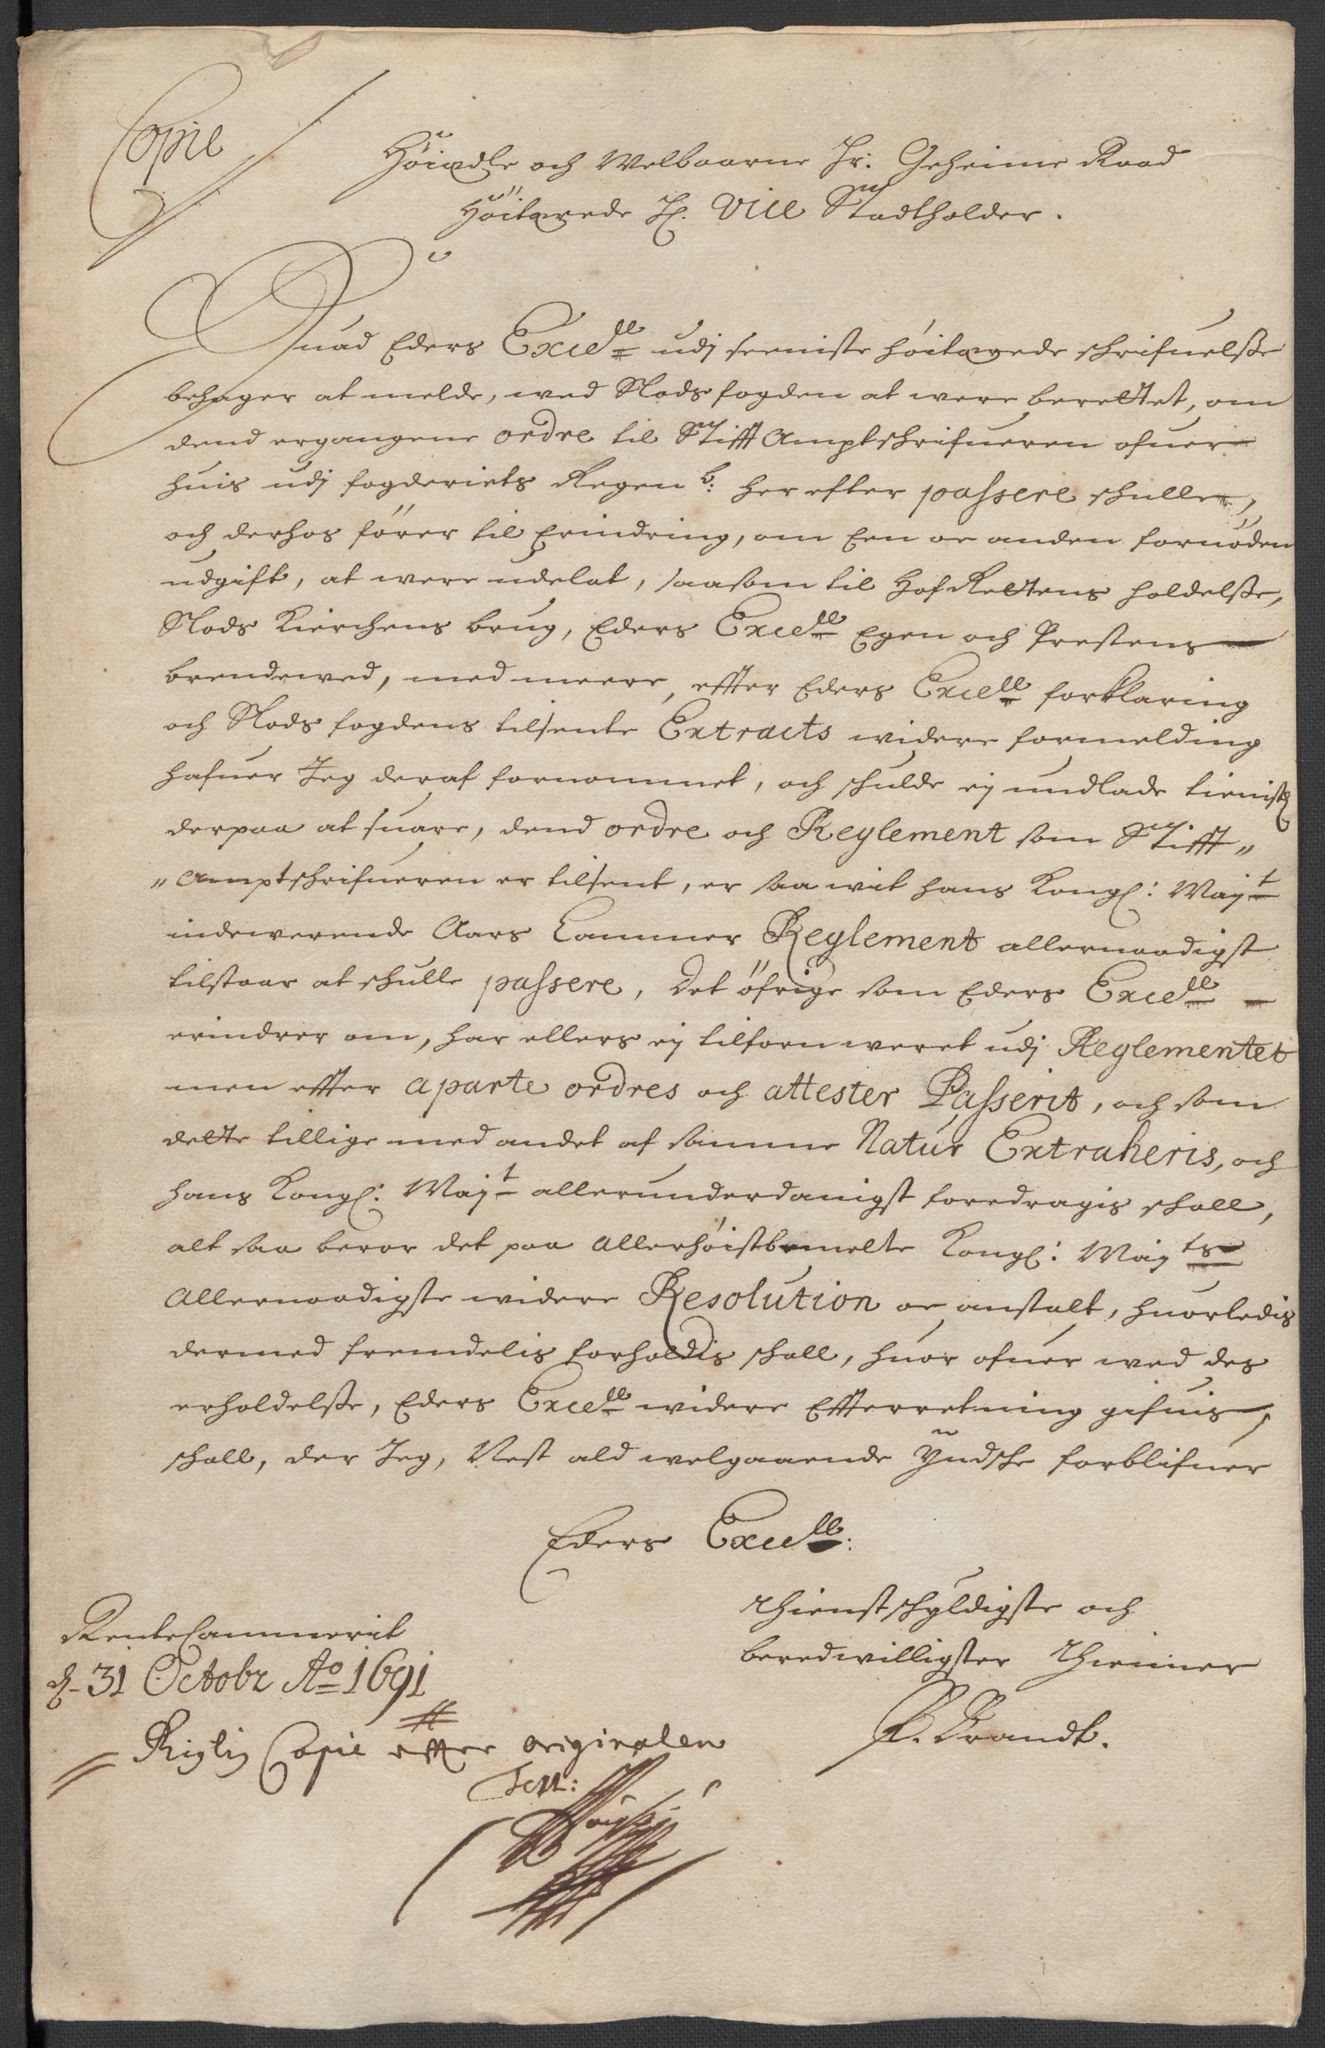 Copie
Höiædle och Welbaarne Hr. Geheime Raad
Höitærede H. Vice Stadtholder.
Huad Eders Excell udj seeniste höitærede schrifuelsße
behager at melde, wed Slods fogden at were berettet, om
dend ergangene ordre til Stifft Amptschrifueren ofuer
huis udj fogderiets Regensb: her efter passere schulle,
och derhos förer til Erindring, om Een oc anden fornöden
udgift, at were udelat, saasom til HofRettens holdelsße,
Slods Kierchens brug, Eders Excell Egen och Prestens
brendewed, med meere, effter Eders Excell forklaring
och Slods fogdens tilsente Extracts widere formelding
hafuer Jeg deraf fornommet, och schulde ej undlade tienistl
derpaa at suare, dend ordre och Reglement som Stifft„
„Amptschrifueren er tilsent, er saa wit hans Kongl: Mayt
indewerende Aars Cammer Reglement allernaadigst
tilstaar at schulle passere, Det öfrige som Eders Excell
erindrer om, har ellers ej tilforn weret udj Reglementet
men effter aparte ordres och attester Passerit, och som
dette tillige med andet af samme Natur Extraheris, och
hans Kongl: Mayt allerunderdanigst foredragis schall,
alt saa beror det paa Allerhöistbemelte Kongl: Mayts
Allernaadigste widere Resolution oc anstalt, huorledis
dermed fremdelis forholdis schall, huor ofuer wed des
erholdelsße, Eders Excell widere Efterretning gifuis,
schall, der Jeg, Nest ald welgaaende Yndsche forblifuer
Eders Excell:
Thienstschyldigste och
beredwilligster Thienner
P. Brandt.
RenteCammerit
d. 31 Octobr Ao 1691
Rigtig Copie effter originalen
Test: